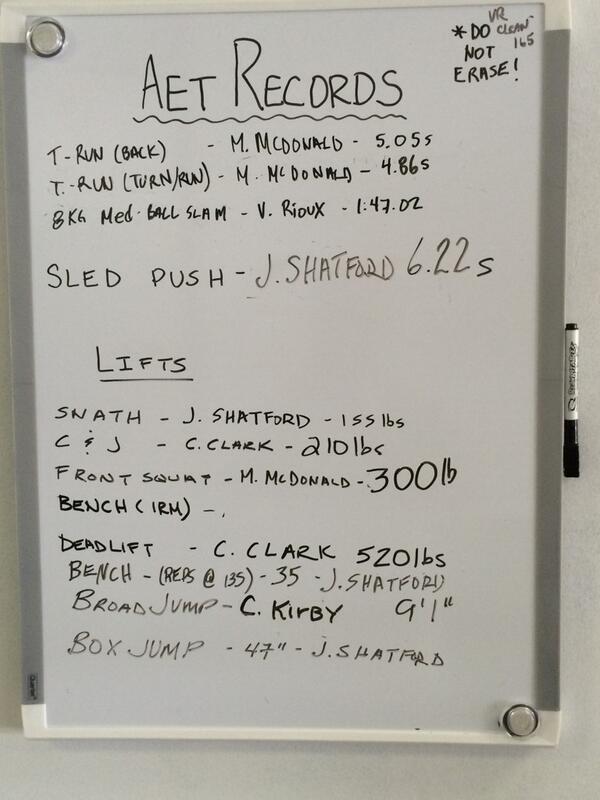 AET RECORDS
* DO NOT ERASE!
VR CLEAN 165
T-RUN (BACK) - M. MCDONALD - 5.05s
T.-RUN (TURN/RUN) - M. MCDONALD - 4.86s
8KG Med-BALL SLAM - V. RIOUX - 1:47.02
SLED PUSH - J. SHATFORD 6.22s
LIFTS
SNATH - J. SHATFORD - 155 lbs
C & J - C. CLARK - 210 lbs
FRONT SQUAT - M. MCDONALD - 300 lb
BENCH (1RM) -
DEADLIFT - C. CLARK 520 lbs
BENCH - (REPS @ 135) - 35 - J. SHATFORD
BROAD JUMP - C. KIRBY 9'1"
BOX JUMP - 47" - J. SHATFORD